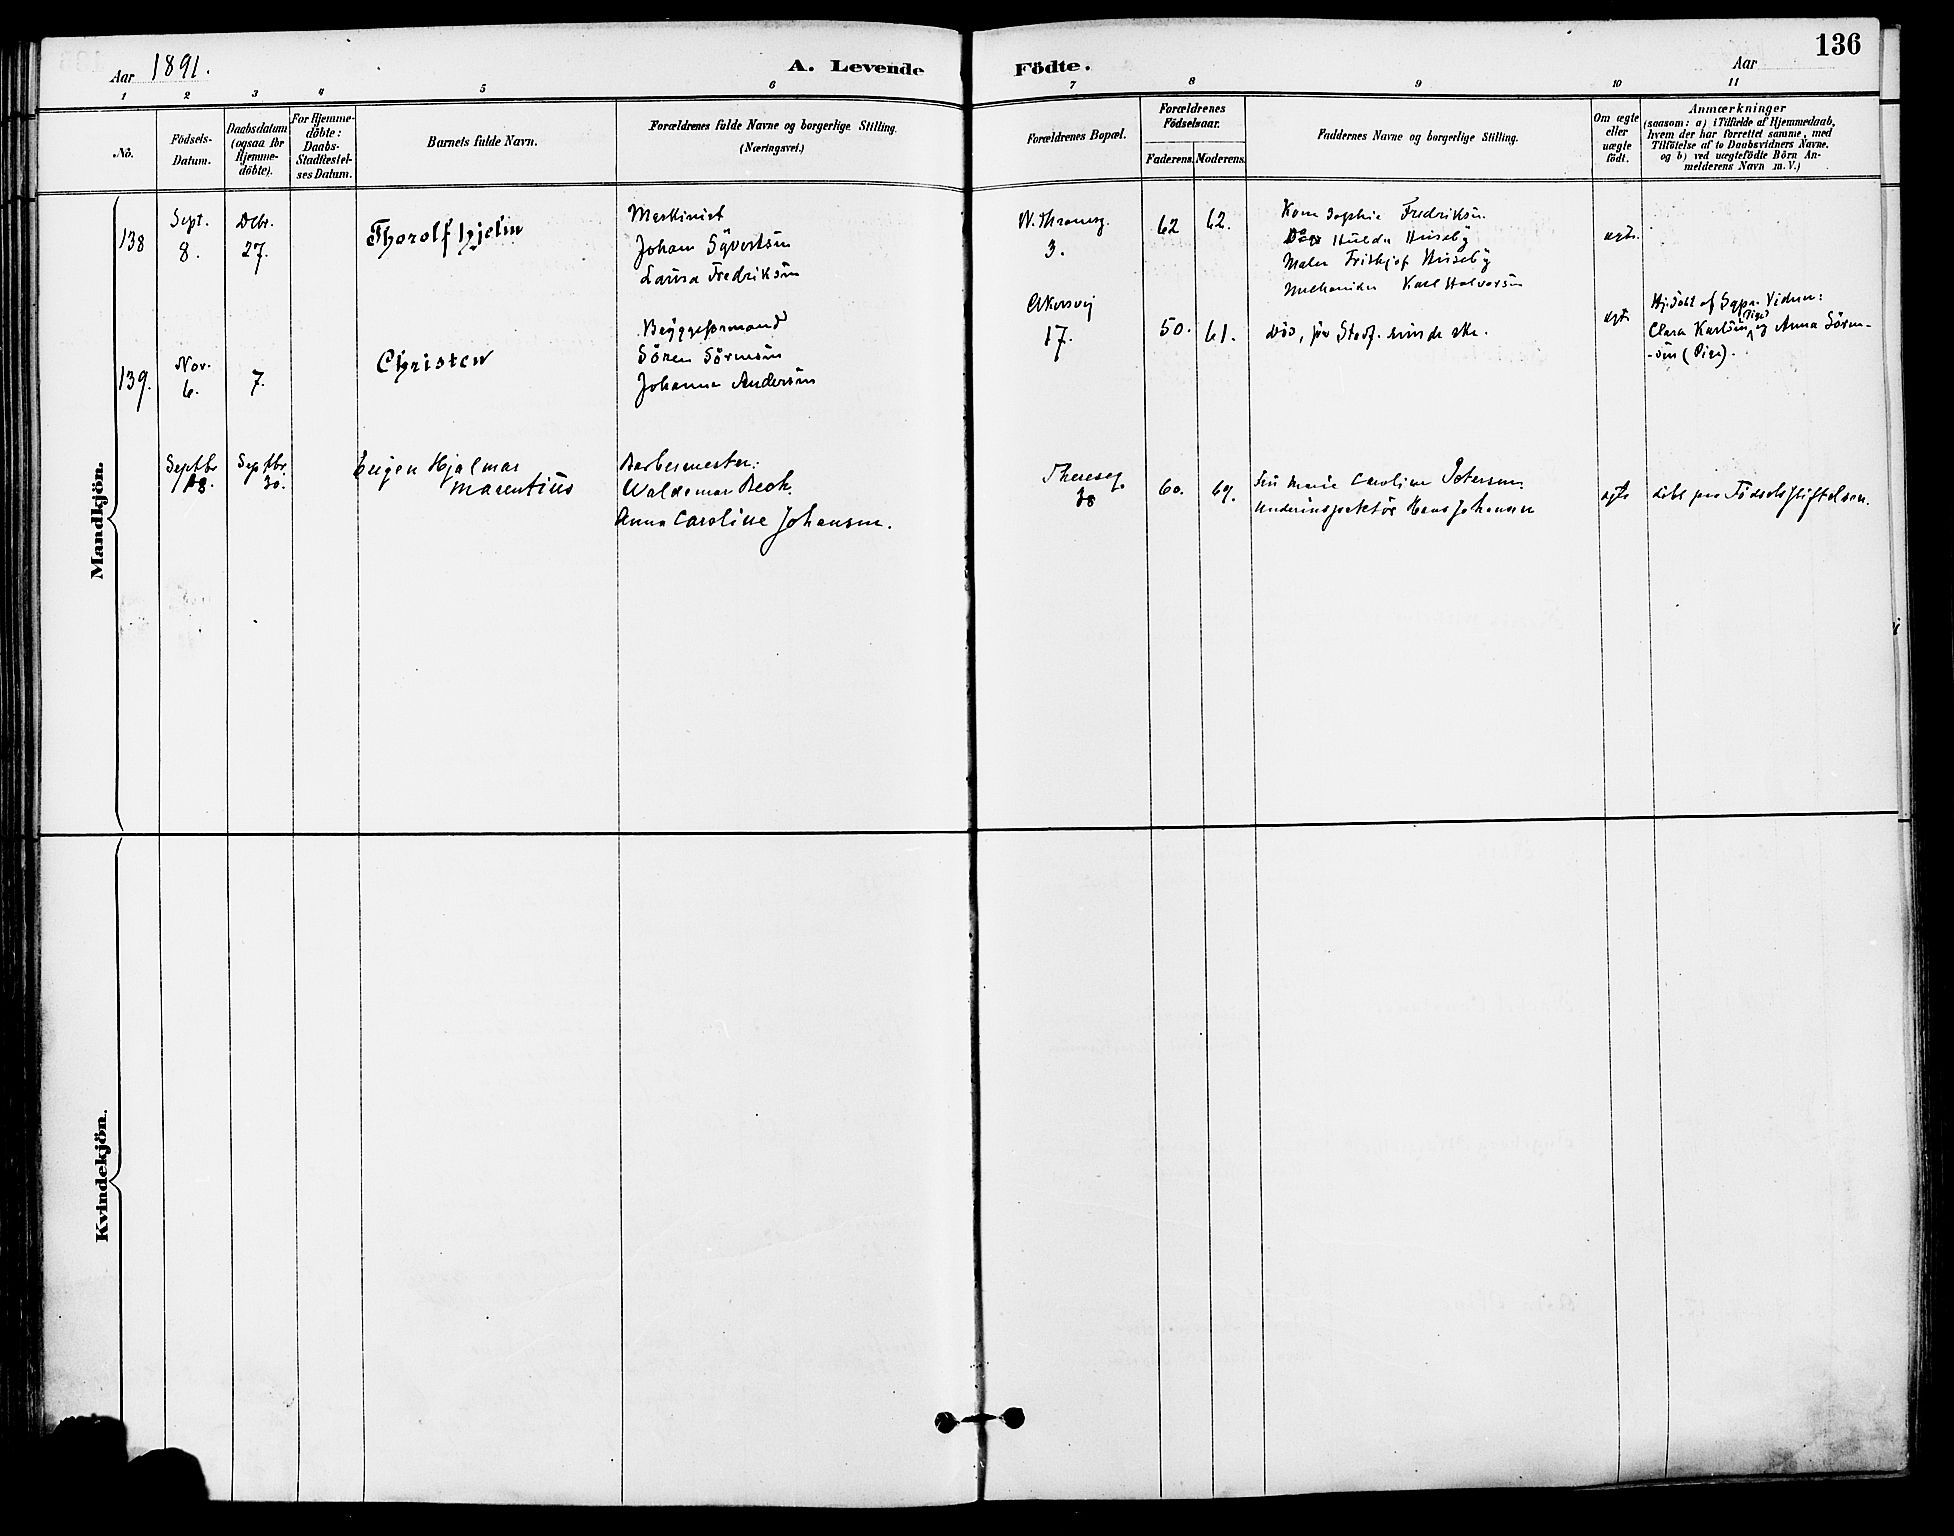 Aar 1891.
A. Levende Födte.
Aar
136
1 2 3 4 5 6 7 8 9 10 11
No.
Födsels-
Datum.
Daabsdatum
(ogsaa for
Hjemme-
döbte).
For Hjemme-
döbte:
Daabs-
Stadfæstel-
ses Datum.
Barnets fulde Navn.
Forældrenes fulde Navne og borgerlige Stilling.
(Næringsvei.)
Forældrenes Bopæl.
Forældrenes
Födselsaar.
Faderens. Moderens.
Faddernes Navne og borgerlige Stilling.
Om ægte
eller
uægte
født.
Anmærkninger
(saasom: a) i Tilfælde af Hjemmedaab,
hvem der har forrettet samme, med
Tilföielse af to Daabsvidners Navne.
og b) ved uægtefödte Börn An-
melderens Navn m. V.)
Mandkjön.
138
Sept.
8.
Dcbr.
27.
Thorolf Hjelm
Maskinist
Johan Syvertsen
Laura Fredriksen
3.
62
62.
Kone Sophie Fredriksen
Hulda Huseby
Maler Frithjof Huseby
Karl Halvorsen
ægte.
139.
Nov.
6.
7.
Christen
Byggeformand
Sören Sörensen
Johanne Andersen
Akersvej
17.
50.
61.
Död, för Stadf. kunde ske.
ægte
Hj.döbt af Vidner:
Clara Karlsen (Pige) og Anna Sören-
-sen (Pige).
Septbr
18.
Septbr.
30.
Eugen Hjalmar
Marentius
Barbermester:
Waldemar Bech.
Anna Caroline Johansen.
Theresesg.
38
60.
69.
Fru Marie Caroline Petersen.
Underinspektör Hans Johansen
ægte
döbt paa Födselsstiftelsen.
Kvindekjön.